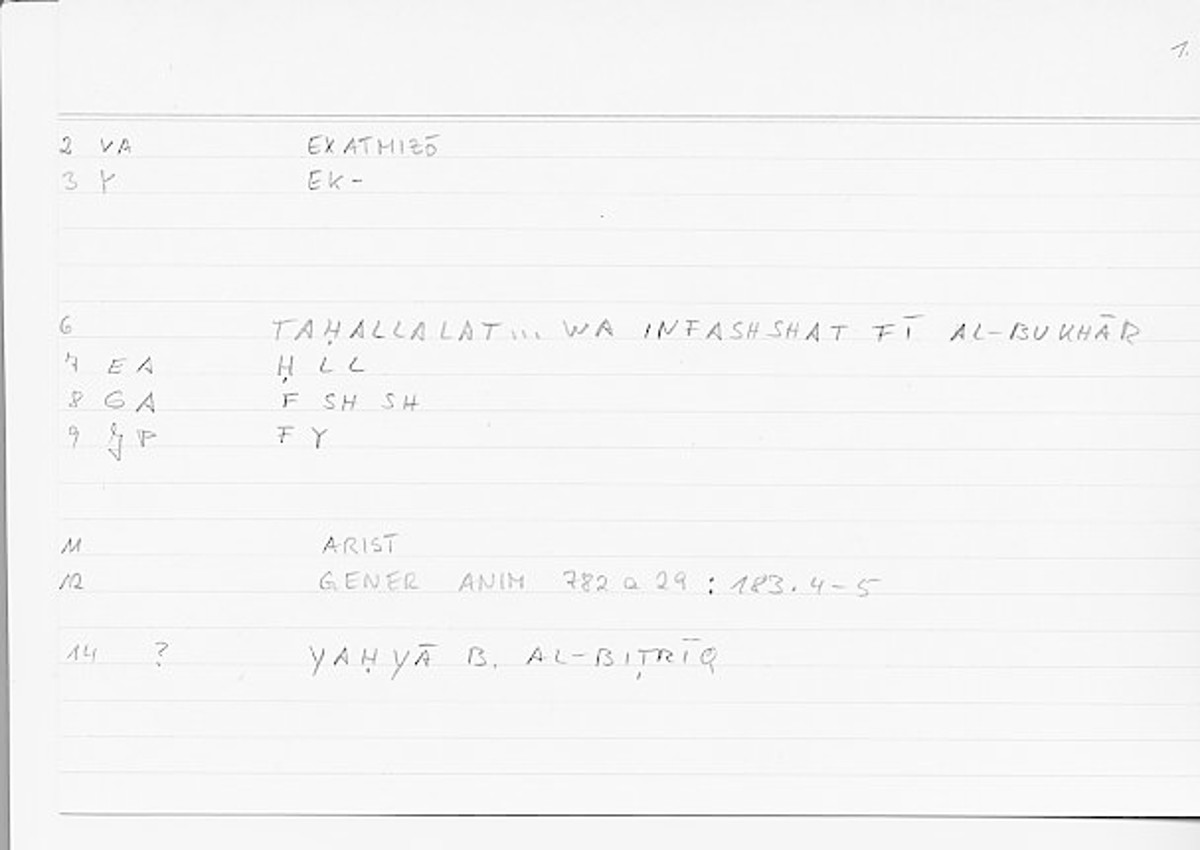 1.
2 VA EXATMIZŌ
3 Y EK-
6 TAḤALLALAT... WA INFASHSHAT FĪ AL-BUKHĀR
7 EA Ḥ L L
8 GA F SH SH
9 F Y
11 ARIST
12 GENER ANIM 782 a 29 : 183.4-5
14 ? YAḤYĀ B. AL-BIṬRĪQ